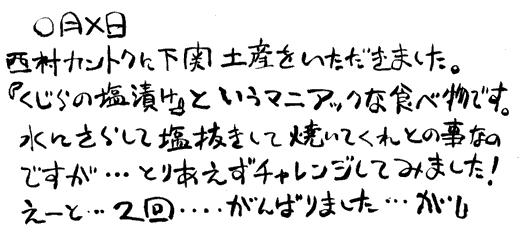 ○月×日
西村カントクに下関土産をいただきました。
『くじらの塩漬け』というマニアックな食べ物です。
水にさらして塩抜きして焼いてくれとの事なの
ですが…とりあえずチャレンジしてみました!
えーと…2回‥‥がんばりました…が